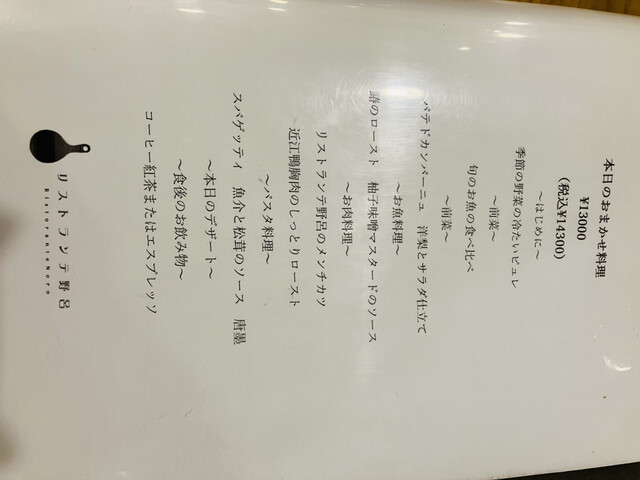 本日のおまかせ料理
¥13000
(税込¥14300)
～はじめに～
季節の野菜の冷たいピュレ
～前菜～
旬のお魚の食べ比べ
～前菜～
パテドカンパーニュ 洋梨とサラダ仕立て
～お魚料理～
のロースト 柚子味噌マスタードのソース
～お肉料理～
リストランテ野呂のメンチカツ
近江鴨胸肉のしっとりロースト
～パスタ料理～
スパゲッティ 魚介と松茸のソース 唐墨
～本日のデザート～
～食後のお飲み物～
コーヒー紅茶またはエスプレッソ
リストランテ野呂
RistoranteNoro